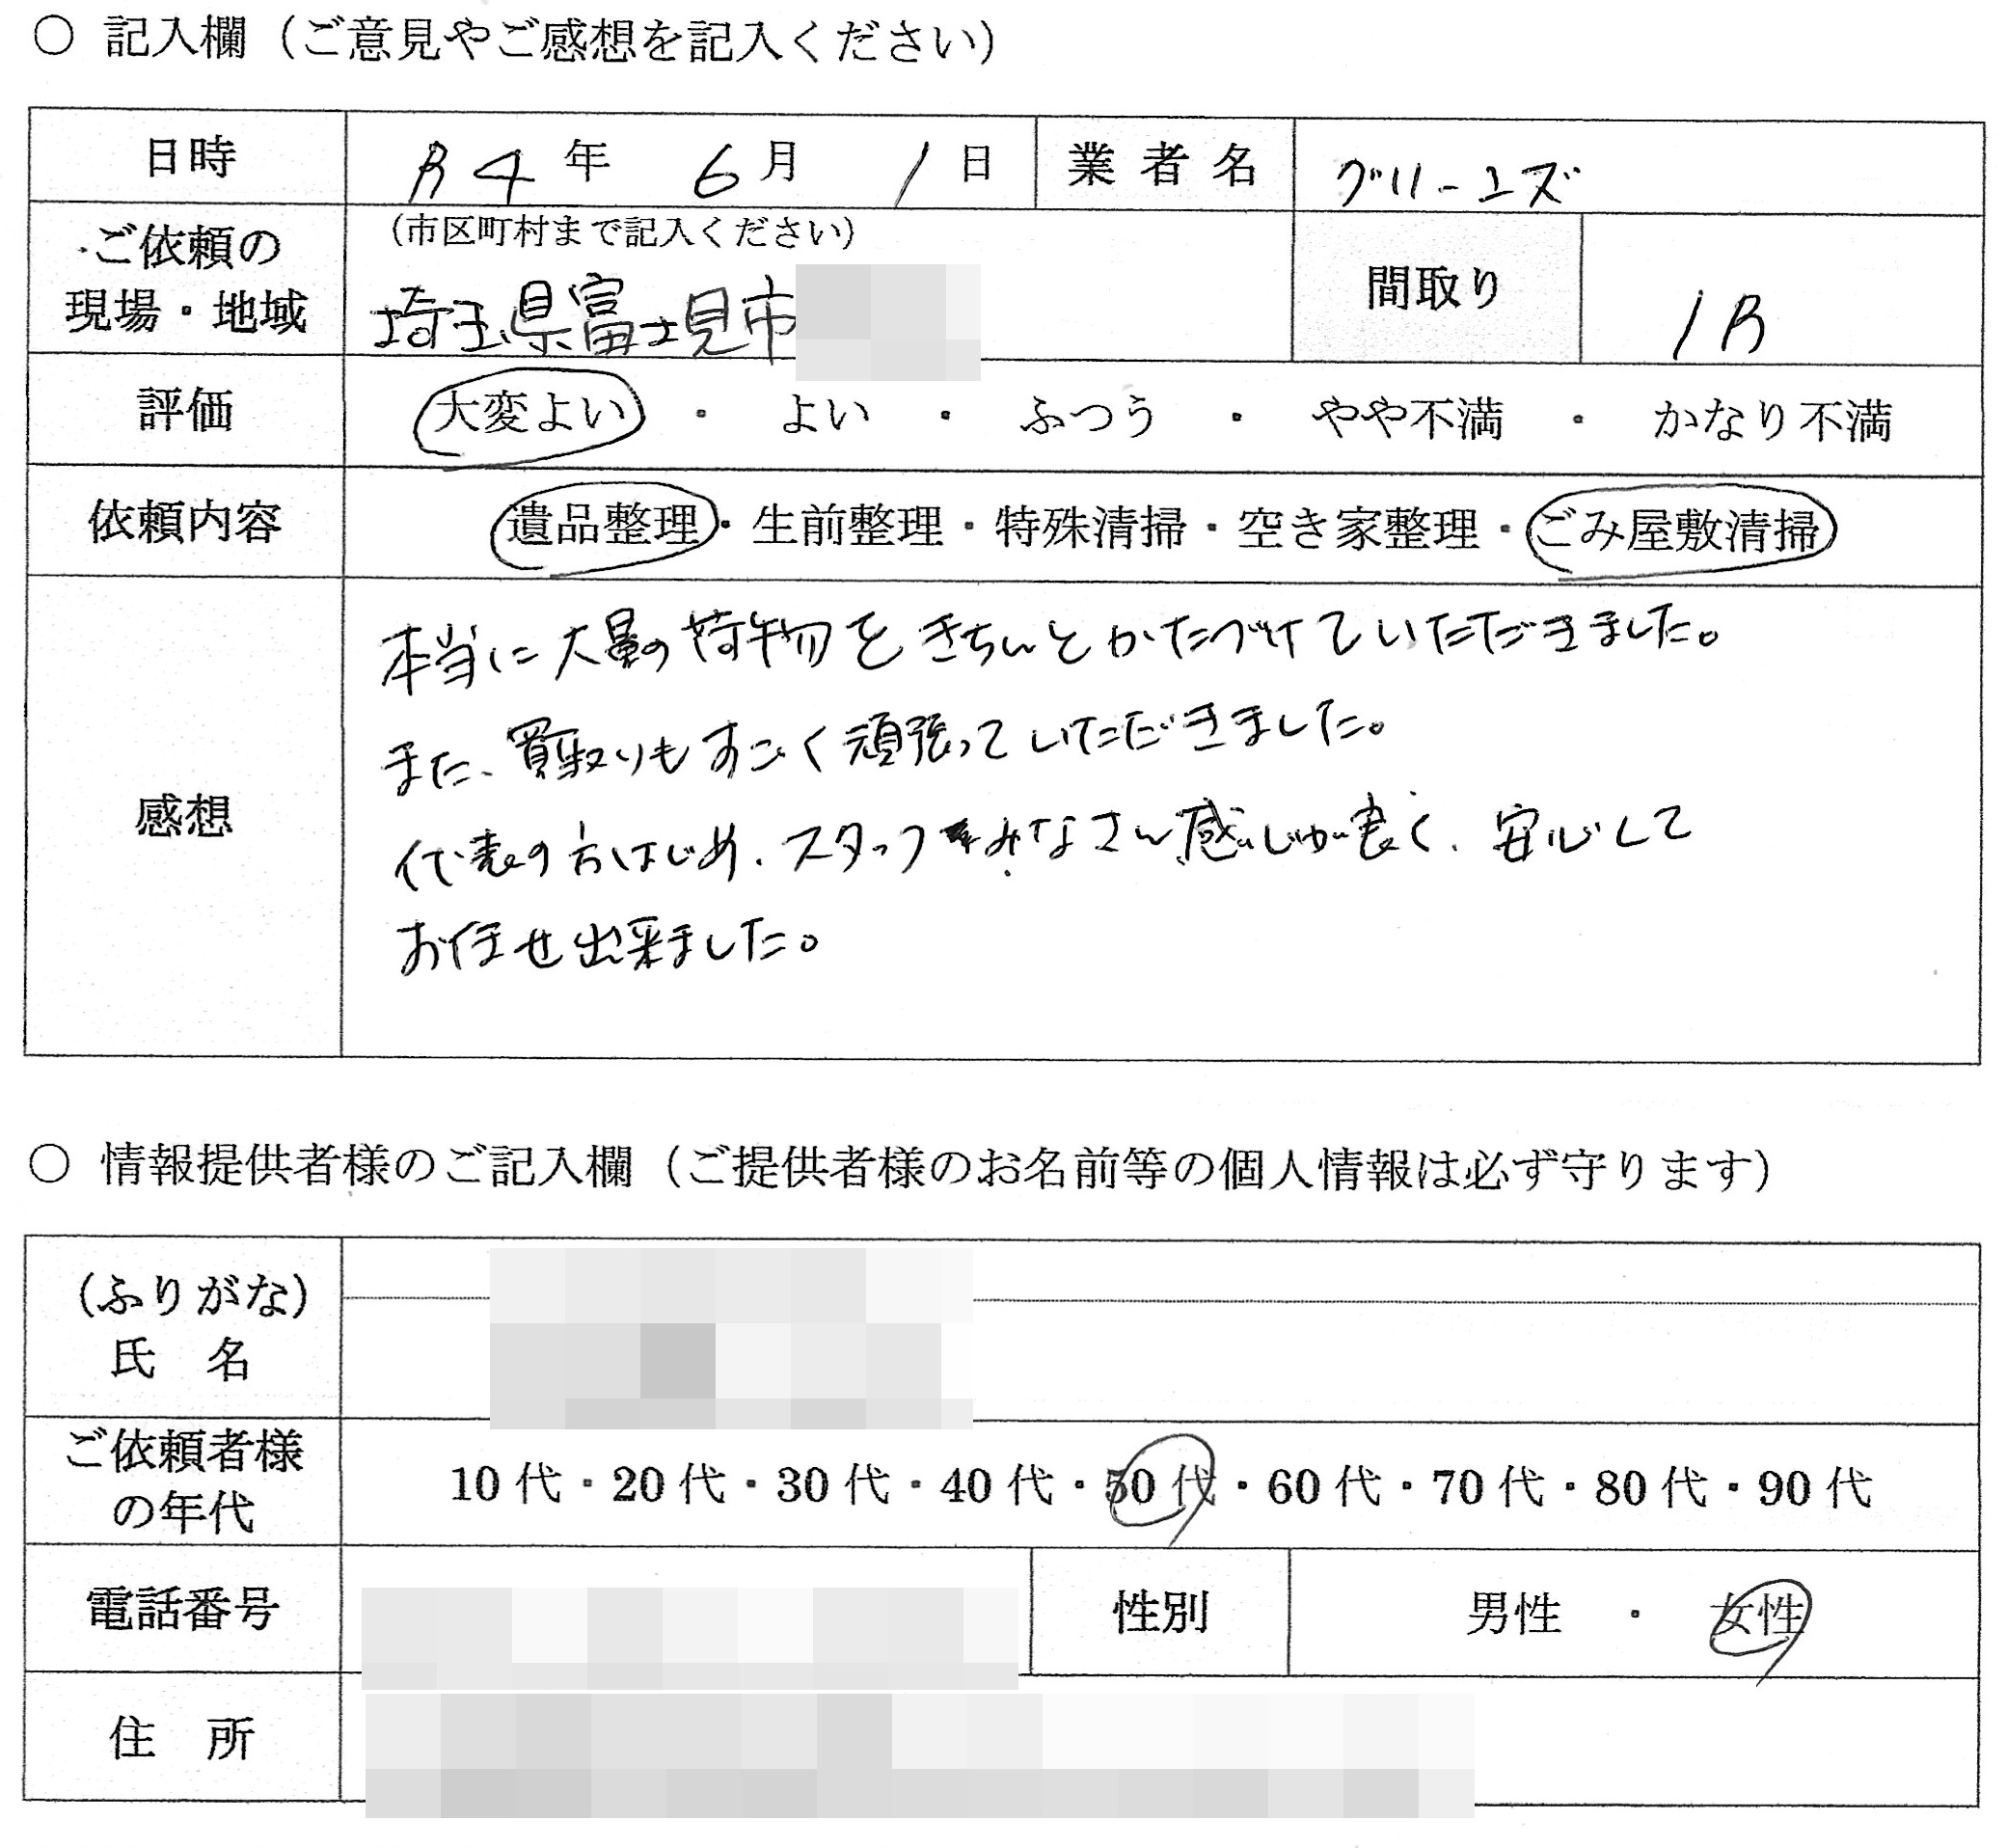 ○ 記入欄（ご意見やご感想を記入ください）
日時 R4年 6月 1日 業者名 グリーンズ
ご依頼の
現場・地域
（市区町村まで記入ください）
埼玉県富士見市
間取り 1R
評価 大変よい ・ よい ・ ふつう ・ やや不満 ・ かなり不満
依頼内容 遺品整理・生前整理・特殊清掃・空き家整理・ごみ屋敷清掃
感想
本当に大量の荷物をきちんとかたづけていただきました。
また、買取りもすごく頑張っていただきました。
代表の方はじめ、スタッフみなさん感じが良く、安心して
お任せ出来ました。
○ 情報提供者様のご記入欄（ご提供者様のお名前等の個人情報は必ず守ります）
（ふりがな）
氏 名
ご依頼者様
の年代
10代・20代・30代・40代・50代・60代・70代・80代・90代
電話番号 性別 男性 ・ 女性
住 所